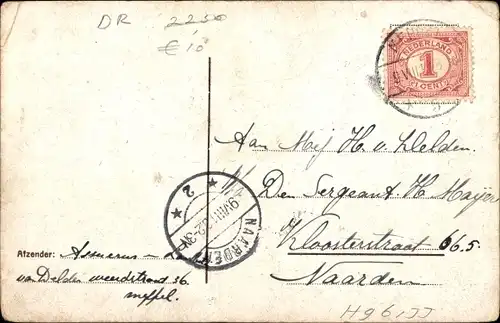 DR 2250
€10
NEDERLAND
1
CENT
Aan Mej H. v. Delden.
p/a Den Sergeant H Mayer
Kloosterstraat 66.5
Naarden
NAARDEN
2
Afzender:
van Delden weerdstraat 36.
meppel.